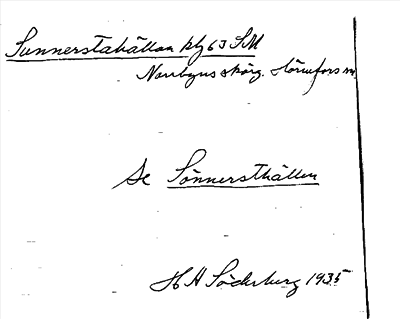 Sunnerstahällan kbg 63 SM
Norrbyns skärg. Hörnefors sn
Se Sönnersthällen
H H Söderberg 1935